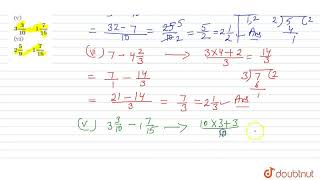 (v)
3 3/10 - 1 7/15
(vii)
2 5/9 - 1 7/15
= 32-7/10 = 25/10 = 5/2 = 2 1/2 ← Ans
(vi) 7 - 4 2/3 → 3×4+2/3 = 14/3
= 7/1 - 14/3
= 21-14/3 = 7/3 = 2 1/3 ← Ans
(v) 3 3/10 - 1 7/15 → 10×3+3/10
doubtnut